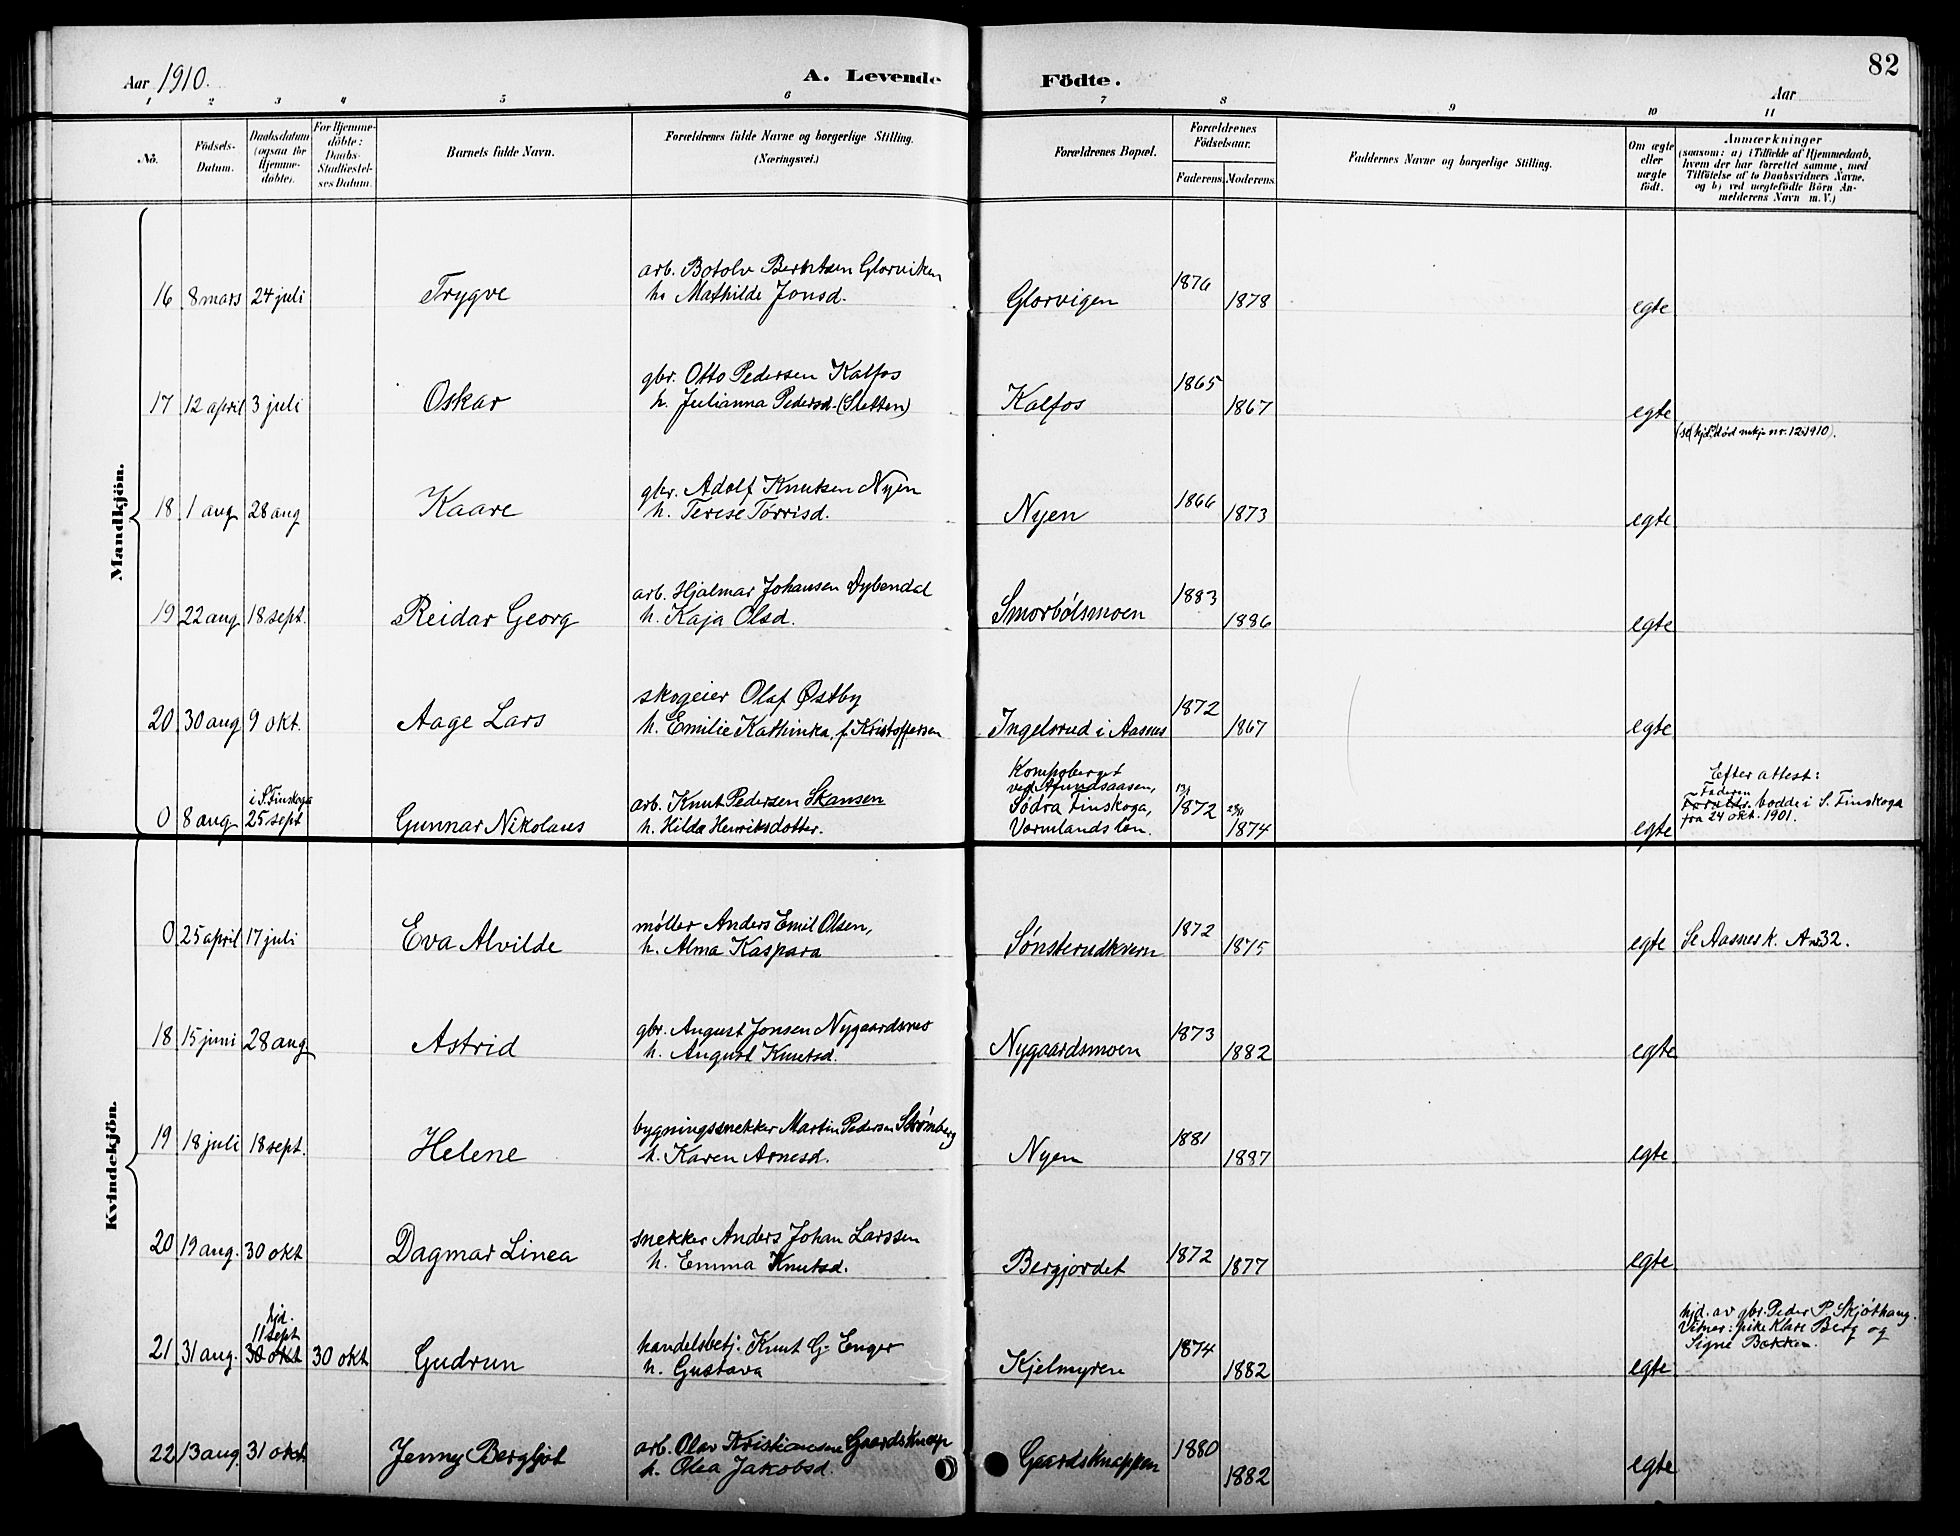 Aar 1910.
A. Levende Födte.
82
Aar
1 2 3 4 5 6 7 8 9 10 11
No.
Födsels-
Datum.
Daabsdatum
(ogsaa for
Hjemme-
døbte).
For Hjemme-
döbte:
Daabs-
Stadfæstel-
ses Datum.
Barnets fulde Navn.
Forældrenes fulde Navne og borgerlige Stilling.
(Næringsvei.)
Forældrenes Bopæl.
Forældrenes
Födselsaar.
Faderens. Moderens.
Faddernes Navne og borgerlige Stilling.
Om ægte
eller
uægte
födt.
Anmærkninger
(saasom: a) i Tilfælde af Hjemmedaab,
hvem der har forrettet samme, med
Tilföielse af to Daabsvidners Navne,
og b) ved uægtefödte Börn An-
melderens Navn m. V.)
Mandkjön.
arb. Botolv Berntsen Glorviken
16 8 mars 24 juli Trygve h. Mathilde Jonsd. Glorvigen 1876 1878 egte
gbr. Otto Pedersen Kalfos
17 12 april 3 juli Oskar h. Julianna Pedersd. (Sletten) Kalfos 1865 1867 egte
nr. 12 1910).
gbr. Adolf Knutsen Nyen
18 1 aug 28 aug Kaare h. Terese Tørrisd. Nyen 1866 1873 egte
arb. Hjalmar Johansen Dybendal
19 22 aug 18 sept. Reidar Georg h. Kaja Olsd. Smorbólsmoen 1883 1886 egte
skogeier Olaf Østby
20 30 aug 9 okt. Aage Lars h. Emilie Kathinka, f. Kristoffersen Ingelsrud i Aasnes 1872 1867 egte
i S. Finskoga
arb. Knut Pedersen Skansen
0 8 aug 25 sept Gunnar Nikolaus h. Hilda Henriksdotter.
ved Afundsaasen,
Södra Finskoga,
Vermlands län.
1872 1874 egte
Efter attest:
Faderen
Forældr. bodde i S. Finskoga
fra 24 okt. 1901.
Kvindekjön.
møller Anders Emil Olsen,
0 25 april 17 juli Eva Alvilde h. Alma Kaspara Sønsterudkvern 1872 1875 egte Se Aasnes k. A nr 32.
gbr. August Jonsen Nygaardsmo
18 15 juni 28 aug Astrid h. August Knutsd. Nygaardsmoen 1873 1882 egte
bygningssnekker Martin Pedersen Strømberg
19 18 juli 18 sept. Helene h. Karen Arnesd. Nyen 1881 1887 egte
snekker Anders Johan Larssen
20 19 aug. 30 okt Dagmar Linea h. Emma Knutsd. Bergjordet 1872 1877 egte
hjd.
11 sept
handelsbetj. Knut G. Enger
21 31 aug. 30 okt 30 okt Gudrun h. Gustava Kjelmyren 1874 1882 egte
hjd. av gbr. Peder P. Skjöthaug.
Vitner: pike Klara Berg og
Signe Bækken.
arb. Olav Kristiansen Gaardsknap
22 13 aug 31 okt Jenny Bergljot h. Olea Jakobsd. Gaardsknappen 1880 1882 egte